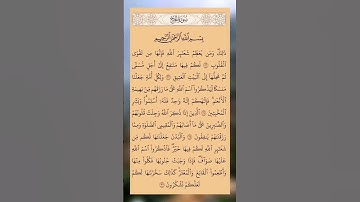 سُورَةُ الحَجِّ
بِسْمِ ٱللَّهِ ٱلرَّحْمَٰنِ ٱلرَّحِيمِ
ذَٰلِكَ وَمَن يُعَظِّمْ شَعَٰٓئِرَ ٱللَّهِ فَإِنَّهَا مِن تَقْوَى
ٱلْقُلُوبِ ٣٢ لَكُمْ فِيهَا مَنَٰفِعُ إِلَىٰٓ أَجَلٍ مُّسَمًّى
ثُمَّ مَحِلُّهَآ إِلَى ٱلْبَيْتِ ٱلْعَتِيقِ ٣٣ وَلِكُلِّ أُمَّةٍ جَعَلْنَا
مَنسَكًا لِّيَذْكُرُوا۟ ٱسْمَ ٱللَّهِ عَلَىٰ مَا رَزَقَهُم مِّنۢ بَهِيمَةِ
ٱلْأَنْعَٰمِ ۗ فَإِلَٰهُكُمْ إِلَٰهٌ وَٰحِدٌ فَلَهُۥٓ أَسْلِمُوا۟ ۗ وَبَشِّرِ
ٱلْمُخْبِتِينَ ٣٤ ٱلَّذِينَ إِذَا ذُكِرَ ٱللَّهُ وَجِلَتْ قُلُوبُهُمْ
وَٱلصَّٰبِرِينَ عَلَىٰ مَآ أَصَابَهُمْ وَٱلْمُقِيمِى ٱلصَّلَوٰةِ وَمِمَّا
رَزَقْنَٰهُمْ يُنفِقُونَ ٣٥ وَٱلْبُدْنَ جَعَلْنَٰهَا لَكُم مِّن
شَعَٰٓئِرِ ٱللَّهِ لَكُمْ فِيهَا خَيْرٌ ۖ فَٱذْكُرُوا۟ ٱسْمَ ٱللَّهِ
عَلَيْهَا صَوَآفَّ ۖ فَإِذَا وَجَبَتْ جُنُوبُهَا فَكُلُوا۟ مِنْهَا
وَأَطْعِمُوا۟ ٱلْقَانِعَ وَٱلْمُعْتَرَّ ۚ كَذَٰلِكَ سَخَّرْنَٰهَا لَكُمْ
لَعَلَّكُمْ تَشْكُرُونَ ٣٦